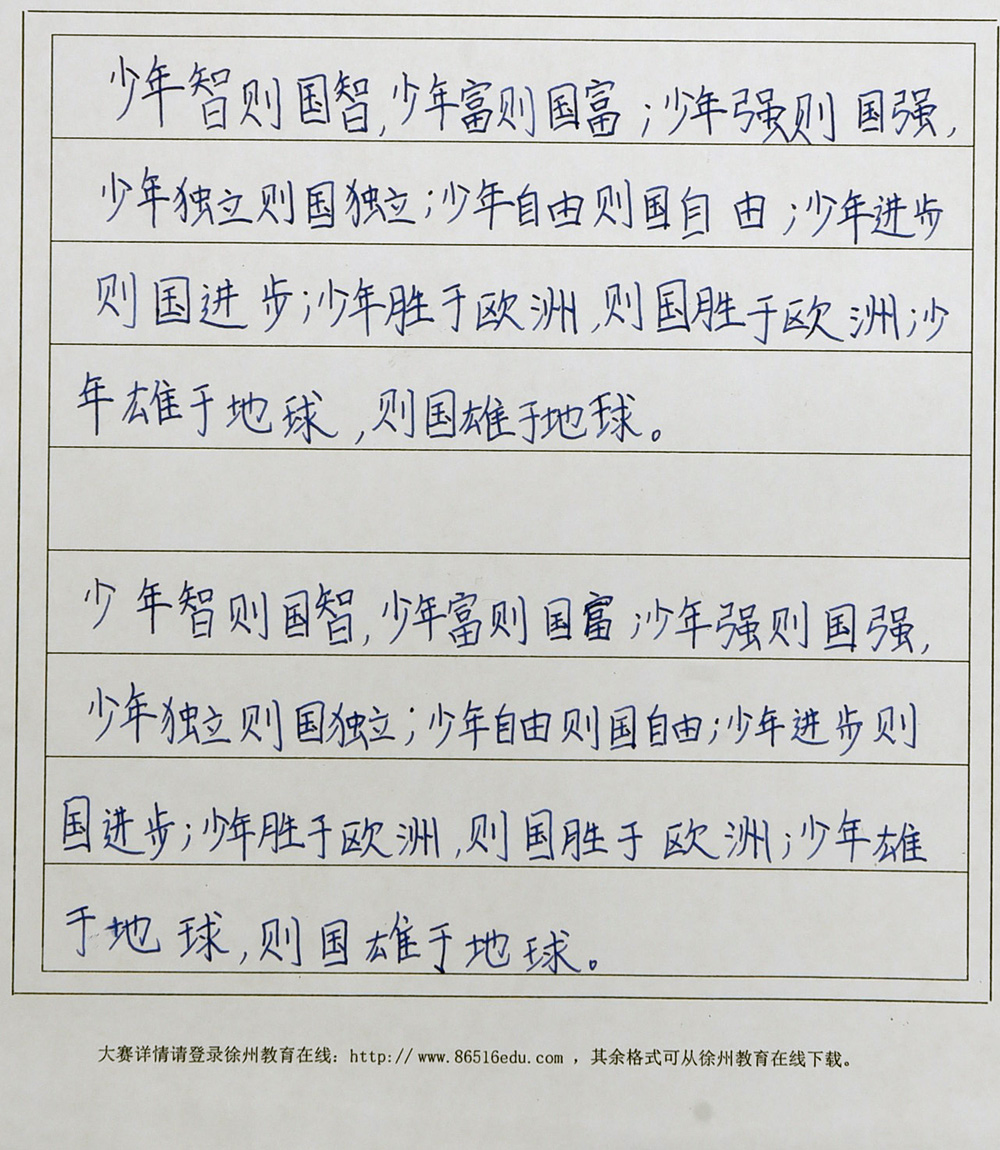 少年智则国智,少年富则国富;少年强则国强,
少年独立则国独立;少年自由则国自由;少年进步
则国进步;少年胜于欧洲,则国胜于欧洲;少
年雄于地球,则国雄于地球。
少年智则国智,少年富则国富;少年强则国强,
少年独立则国独立;少年自由则国自由;少年进步则
国进步;少年胜于欧洲,则国胜于欧洲;少年雄
于地球,则国雄于地球。
大赛详情请登录徐州教育在线：http://www.86516edu.com，其余格式可从徐州教育在线下载。